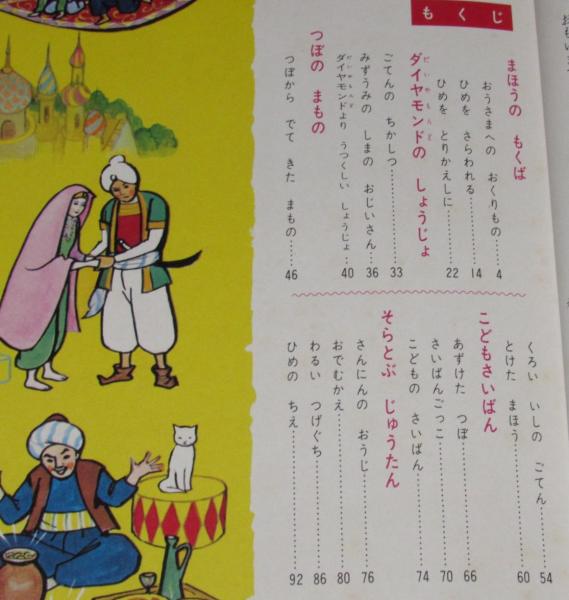 もくじ
まほうの もくば
おうさまへの おくりもの……4
ひめを さらわれる……14
ひめを とりかえしに……22
ダイヤモンドの しょうじょ
ごてんの ちかしつ……33
みずうみの しまの おじいさん……36
ダイヤモンドより うつくしい しょうじょ……40
つぼの まもの
つぼから でて きた まもの……46
くろい いしの ごてん……54
とけた まほう……60
こどもさいばん
あずけた つぼ……66
さいばんごっこ……70
こどもの さいばん……74
そらとぶ じゅうたん
さんにんの おうじ……76
おでむかえ……80
わるい つげぐち……86
ひめの ちえ……92